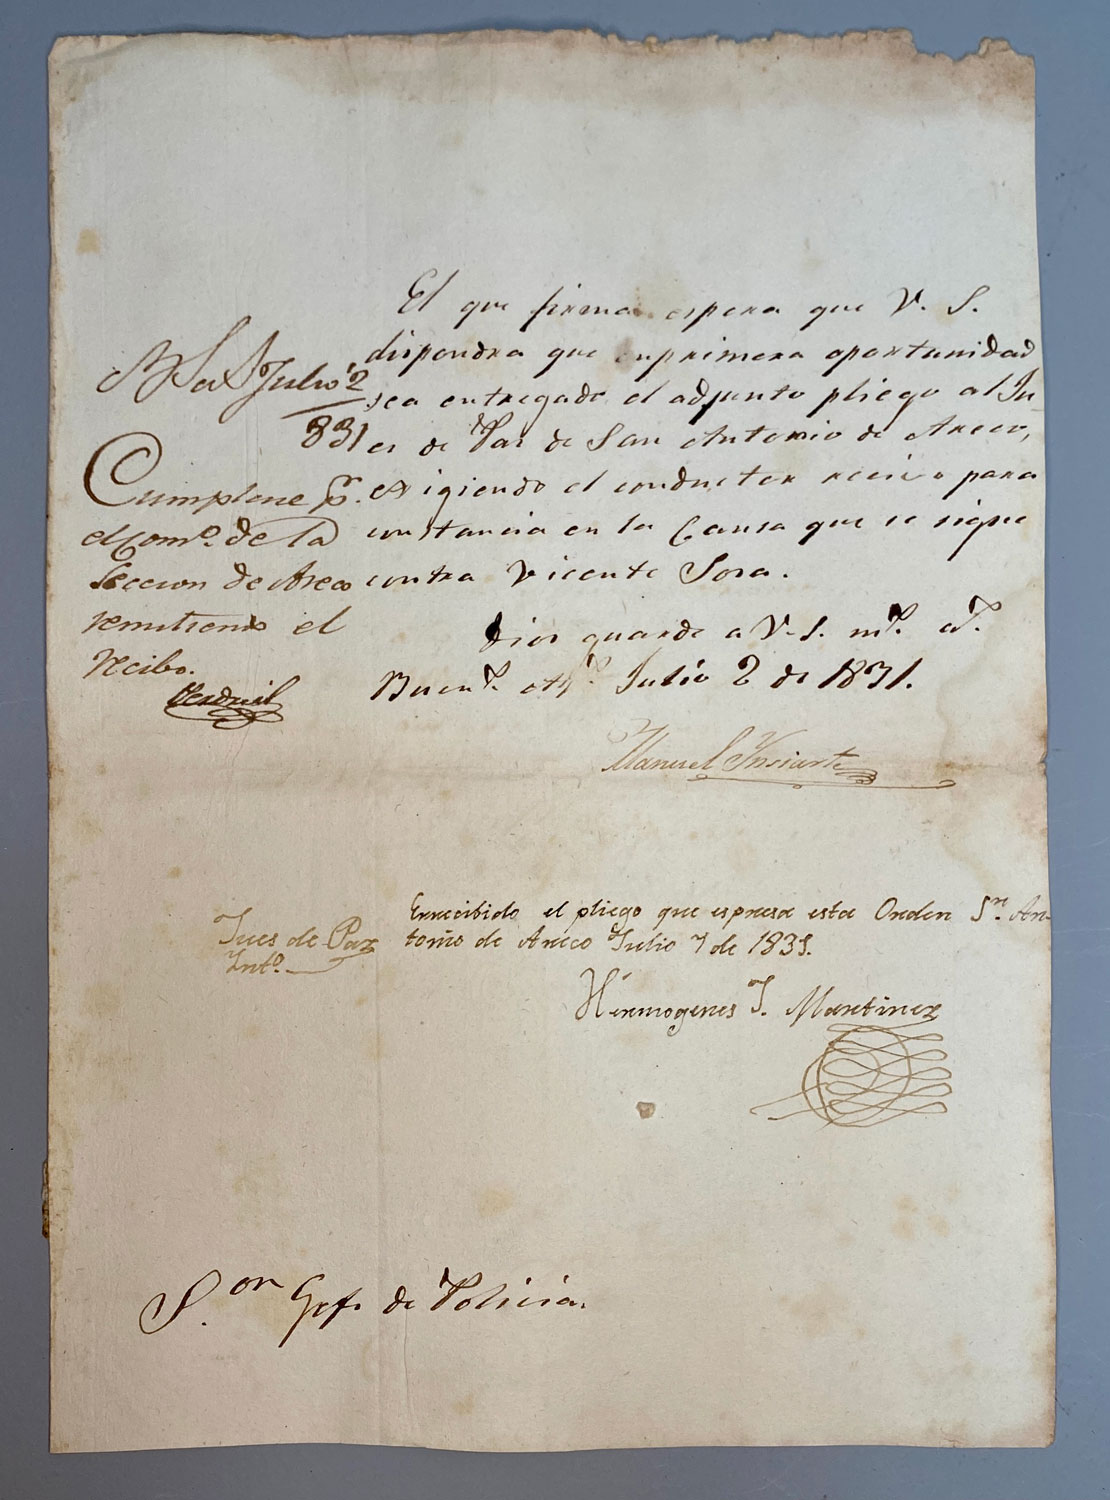 El que firma espera que V. S.
dispondra que enprimera oportunidad
sea entregado el adjunto pliego al Ju-
es de Pas de San Antonio de Areco,
exigiendo el conductor recivo para
constancia en la Causa que se sigue
contra Vicente Sosa.
Dios guarde a V. S. m.s a.s
Buen.s Julio 2 de 1831.
Manuel Ynsiarte
Julio 2
831
Cumplase
el Com.o de la
Seccion de Areco
remitiendo el
recibo.
Juez de Paz
Int.o
Enrecibido el pliego que espresa esta Orden S.n An-
tonio de Areco Julio 7 de 1831.
Hermogenes J. Martinez
S.or Gefe de Policia.